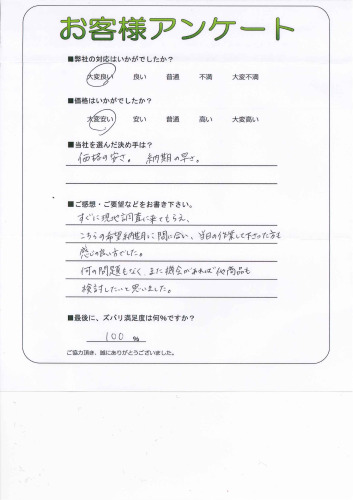 お客様アンケート
■弊社の対応はいかがでしたか？
大変良い 良い 普通 不満 大変不満
■価格はいかがでしたか？
大変安い 安い 普通 高い 大変高い
■当社を選んだ決め手は？
価格の安さ。 納期の早さ。
■ご感想・ご要望などをお書き下さい。
すぐに現地調査に来てもらえ、
こちらの希望納期に間に合い、当日の作業して下さった方も
感じの良い方でした。
何の問題もなく、また機会があれば他商品も
検討したいと思いました。
■最後に、ズバリ満足度は何％ですか？
100 ％
ご協力頂き、誠にありがとうございました。